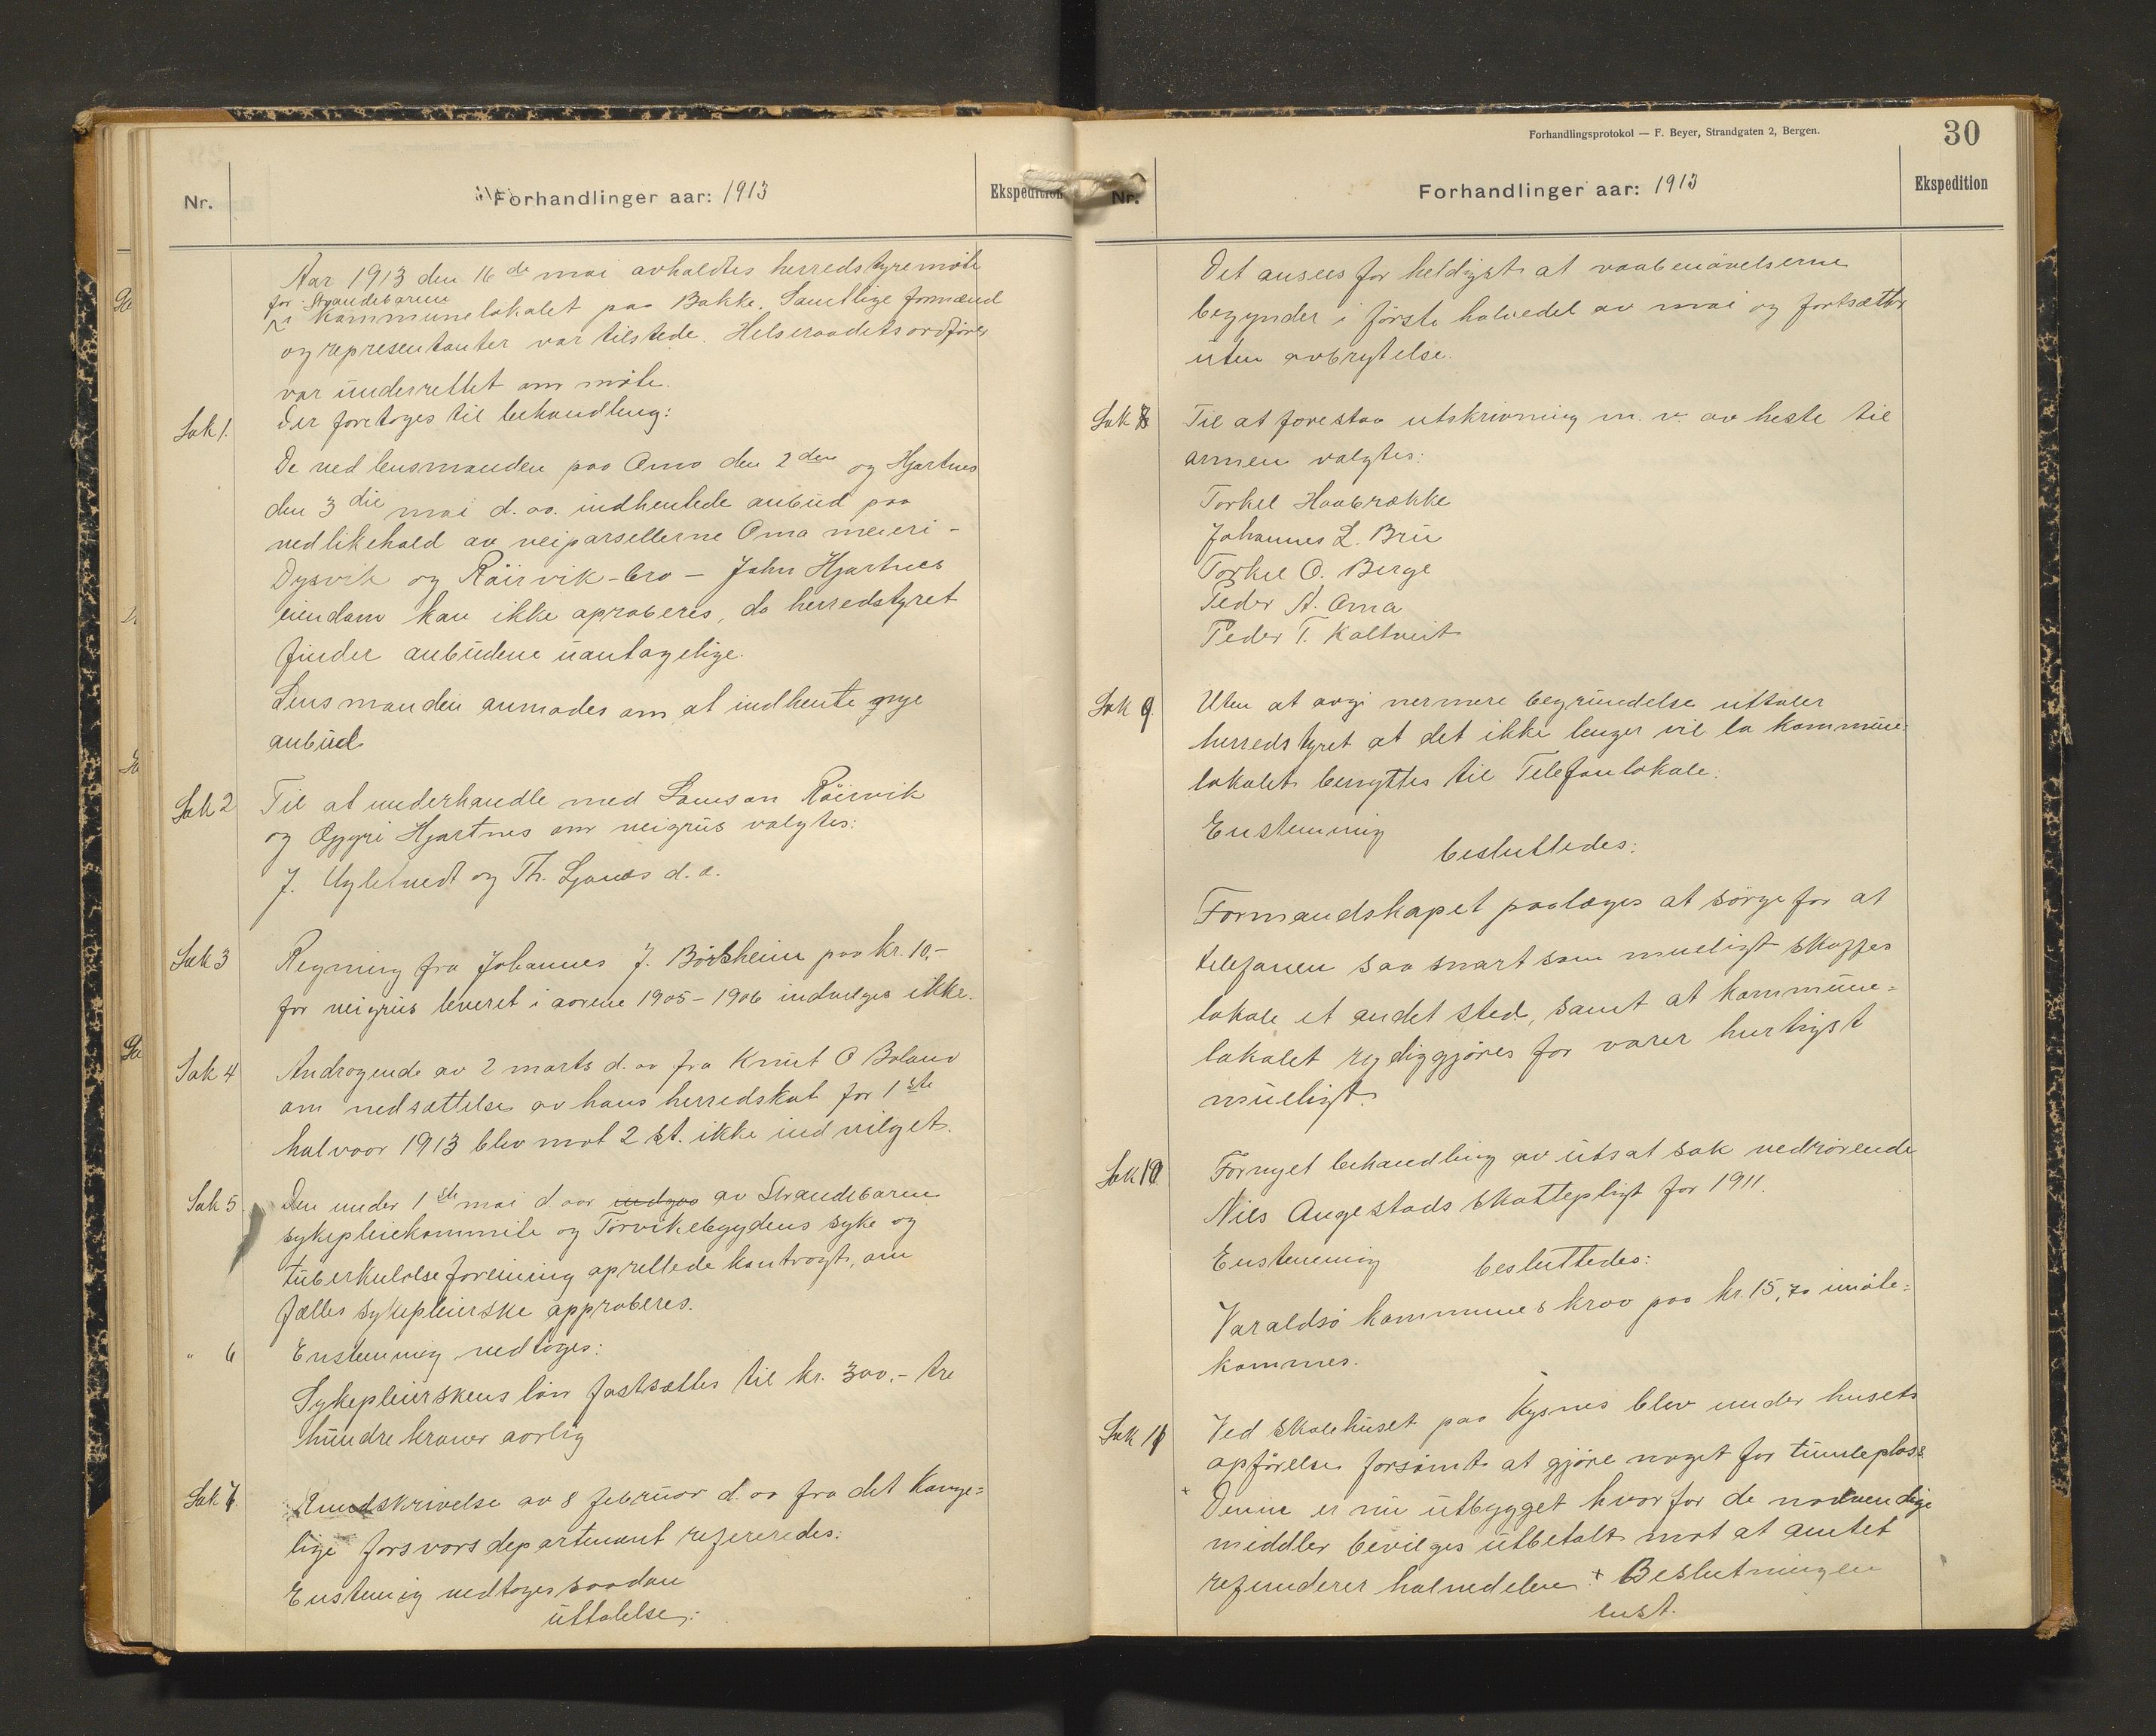 Nr.
Forhandlinger aar: 1913
Ekspedition
Aar 1913 den 16de mai avholdtes herredstyremöte
for Strandebarm
i Kommunelokalet paa Bakke. Samtlige formænd
og representanter var tilstede. Helseraadets ordförer
var underrettet om möte.
Der foretoges til behandling:
Sak 1.
De ved lensmanden paa Oma den 2den og Hjartnes
den 3die mai d. aa. indhentede anbud paa
vedlikehold av veiparsellerne Oma meieri-
Dysvik og Röirvik-bro – John Hjartnes
eiendom kan ikke aproberes, da herredstyret
finder anbudene uantagelige.
Lensmanden anmodes om at indhente nye
anbud
Sak 2
Til at underhandle med Samson Röirvik
og Oggri Hjartnes om veigrus valgtes:
J. og Th. Ljones d. e.
Sak 3
Regning fra Johannes J. Börsheim paa kr. 10,-
for veigrus leveret i aarene 1905-1906 indvilges ikke.
Sak 4
Andragende av 2 marts d. aa fra Knut O Boland
om nedsættelse av hans herredskat for 1ste
halvaar 1913 blev mot 2 st. ikke indvilget.
Sak 5
Den under 1ste mai d aar indgaa av Strandebarm
sykepleiekommite og Torvikebygdens syke og
tuberkuloseforeining oprettede kontragt, om
fælles sykepleierske approberes.
" 6
Enstemmig vedtoges:
Sykepleierskens lön fastsættes til kr. 300.- tre
hundre kroner aarlig
Sak 7.
Rundskrivelse av 8 februar d. aa fra det Konge=
lige forsvarsdepartement refereredes.
Enstemig vedtoges saadan
uttalelse:
Forhandlingsprotokol — F. Beyer, Strandgaten 2, Bergen.
30
Nr.
Forhandlinger aar: 1913
Ekspedition
Det ansees for heldigst at vaabenövelserne
begynder i förste halvedel av mai og fortsætter
uten avbrytelse.
Sak 8
Til at forestaa utskrivning m. v. av heste til
armen valgtes:
Torkel Haabrække
Johannes L. Bru
Torkel O. Berge
Peder A. Oma
Peder T. Kaltveit
Sak 9.
Uten at avgi nermere begrundelse uttaler
herredstyret at det ikke lenger vil la kommune=
lokalet benyttes til Telefonlokale.
Enstemmig
besluttedes:
Formandskapet paalæges at sörge for at
telefonen saa snart som mueligt skaffes
lokale et andet sted, samt at kommune=
lokalet rydiggjöres for varer hurtigst
mueligt.
Sak 10
Fornyet behandling av utsat sak vedrörende
Nils Augestads skattepligt for 1911.
Enstemmig
besluttedes:
Varaldsö kommunes krav paa kr. 15,70 imöte=
kommes.
Sak 11
Ved skolehuset paa Kysnes blev under husets
opförelse forsömt at gjöre noget for tumleplass
+ Denne er nu utbygget hvorfor de nodvendige
middler bevilges utbetalt mot at amtet
refunderer halvedelen. + Beslutningen
enst.